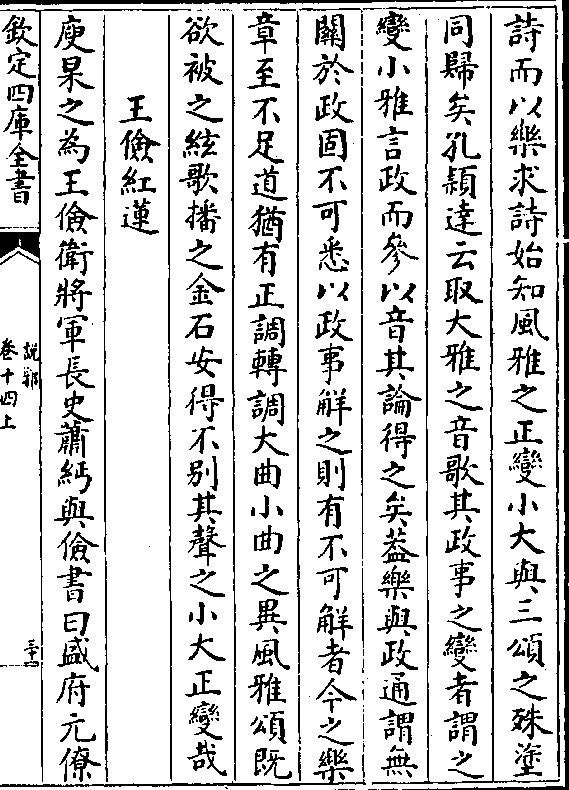 詩而以樂求詩始知風雅之正變小大與三頌之殊塗
同歸矣孔頴達云取大雅之音歌其政事之變者謂之
變小雅言政而參以音其論得之矣葢樂與政通謂無
關於政固不可悉以政事解之則有不可解者今之樂
章至不足道猶有正調轉調大曲小曲之異風雅頌既
欲被之絃歌播之金石安得不别其聲之小大正變哉
王儉紅蓮
庾杲之為王儉衛將軍長史蕭緬與儉書曰盛府元僚
欽定四庫全書
說郛
卷十四上